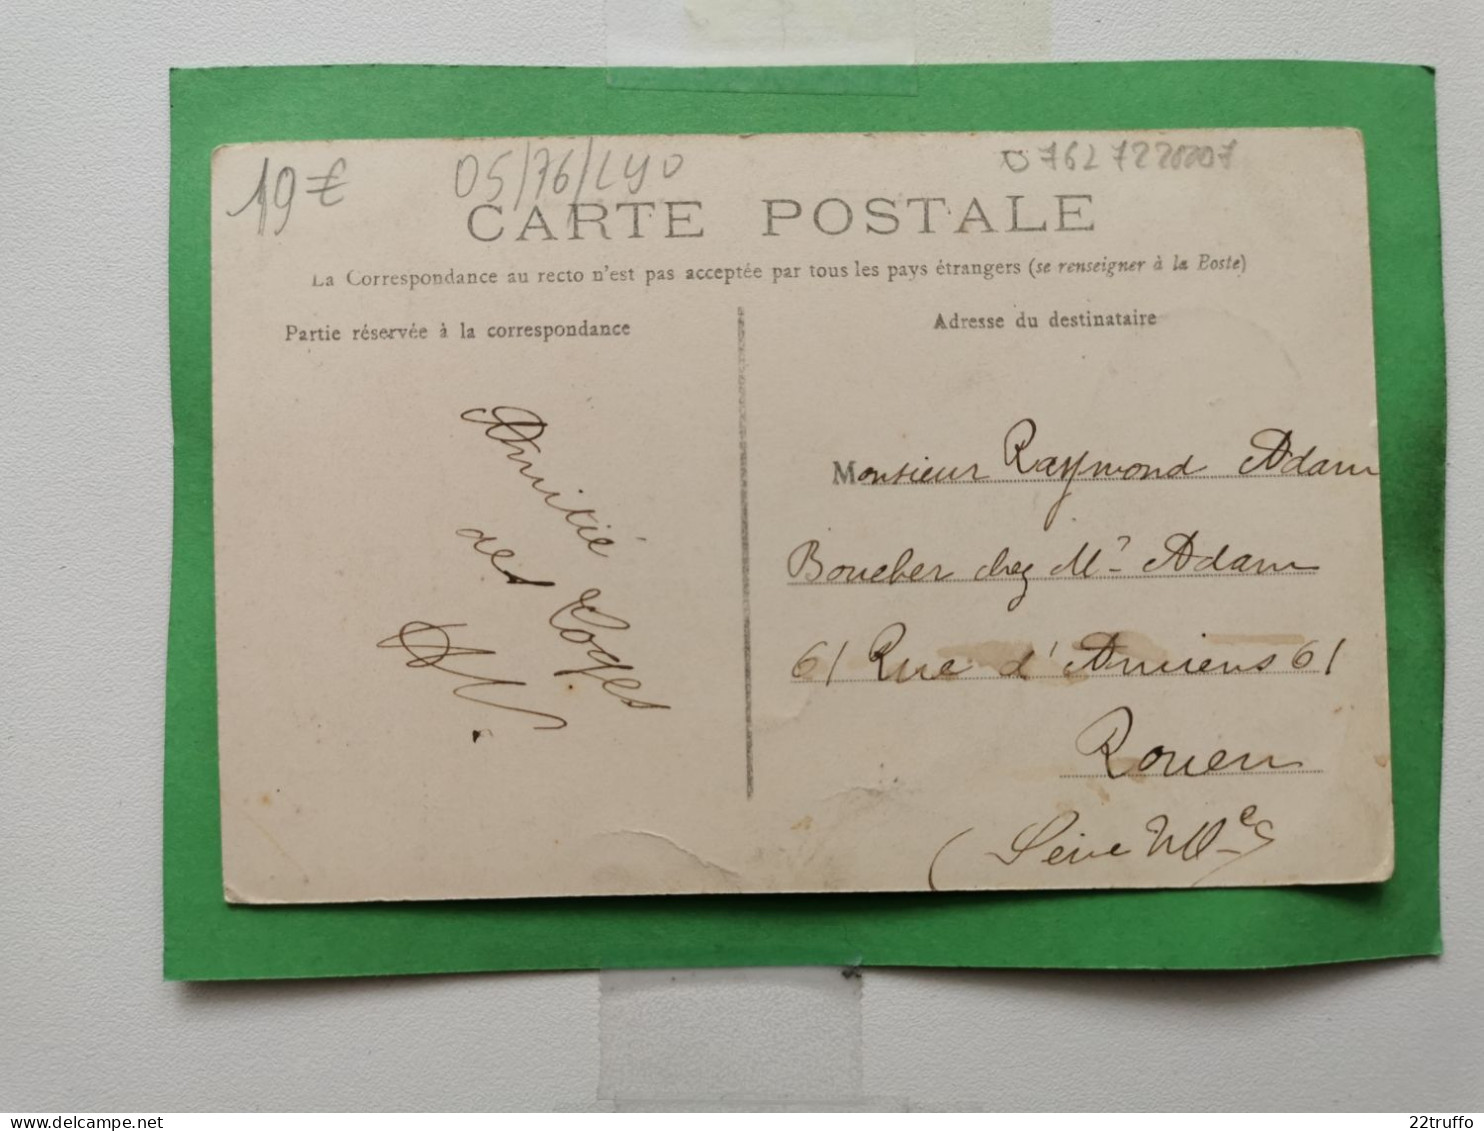 19€
05/76/LYO
07627220207
CARTE POSTALE
La Correspondance au recto n'est pas acceptée par tous les pays étrangers (se renseigner à la Poste)
Partie réservée à la correspondance
Adresse du destinataire
Amitié
des Loges
Monsieur Raymond Adam
Boucher chez Mr Adam
61 Rue d'Amiens 61
Rouen
(Seine
delcampe.net
22truffo